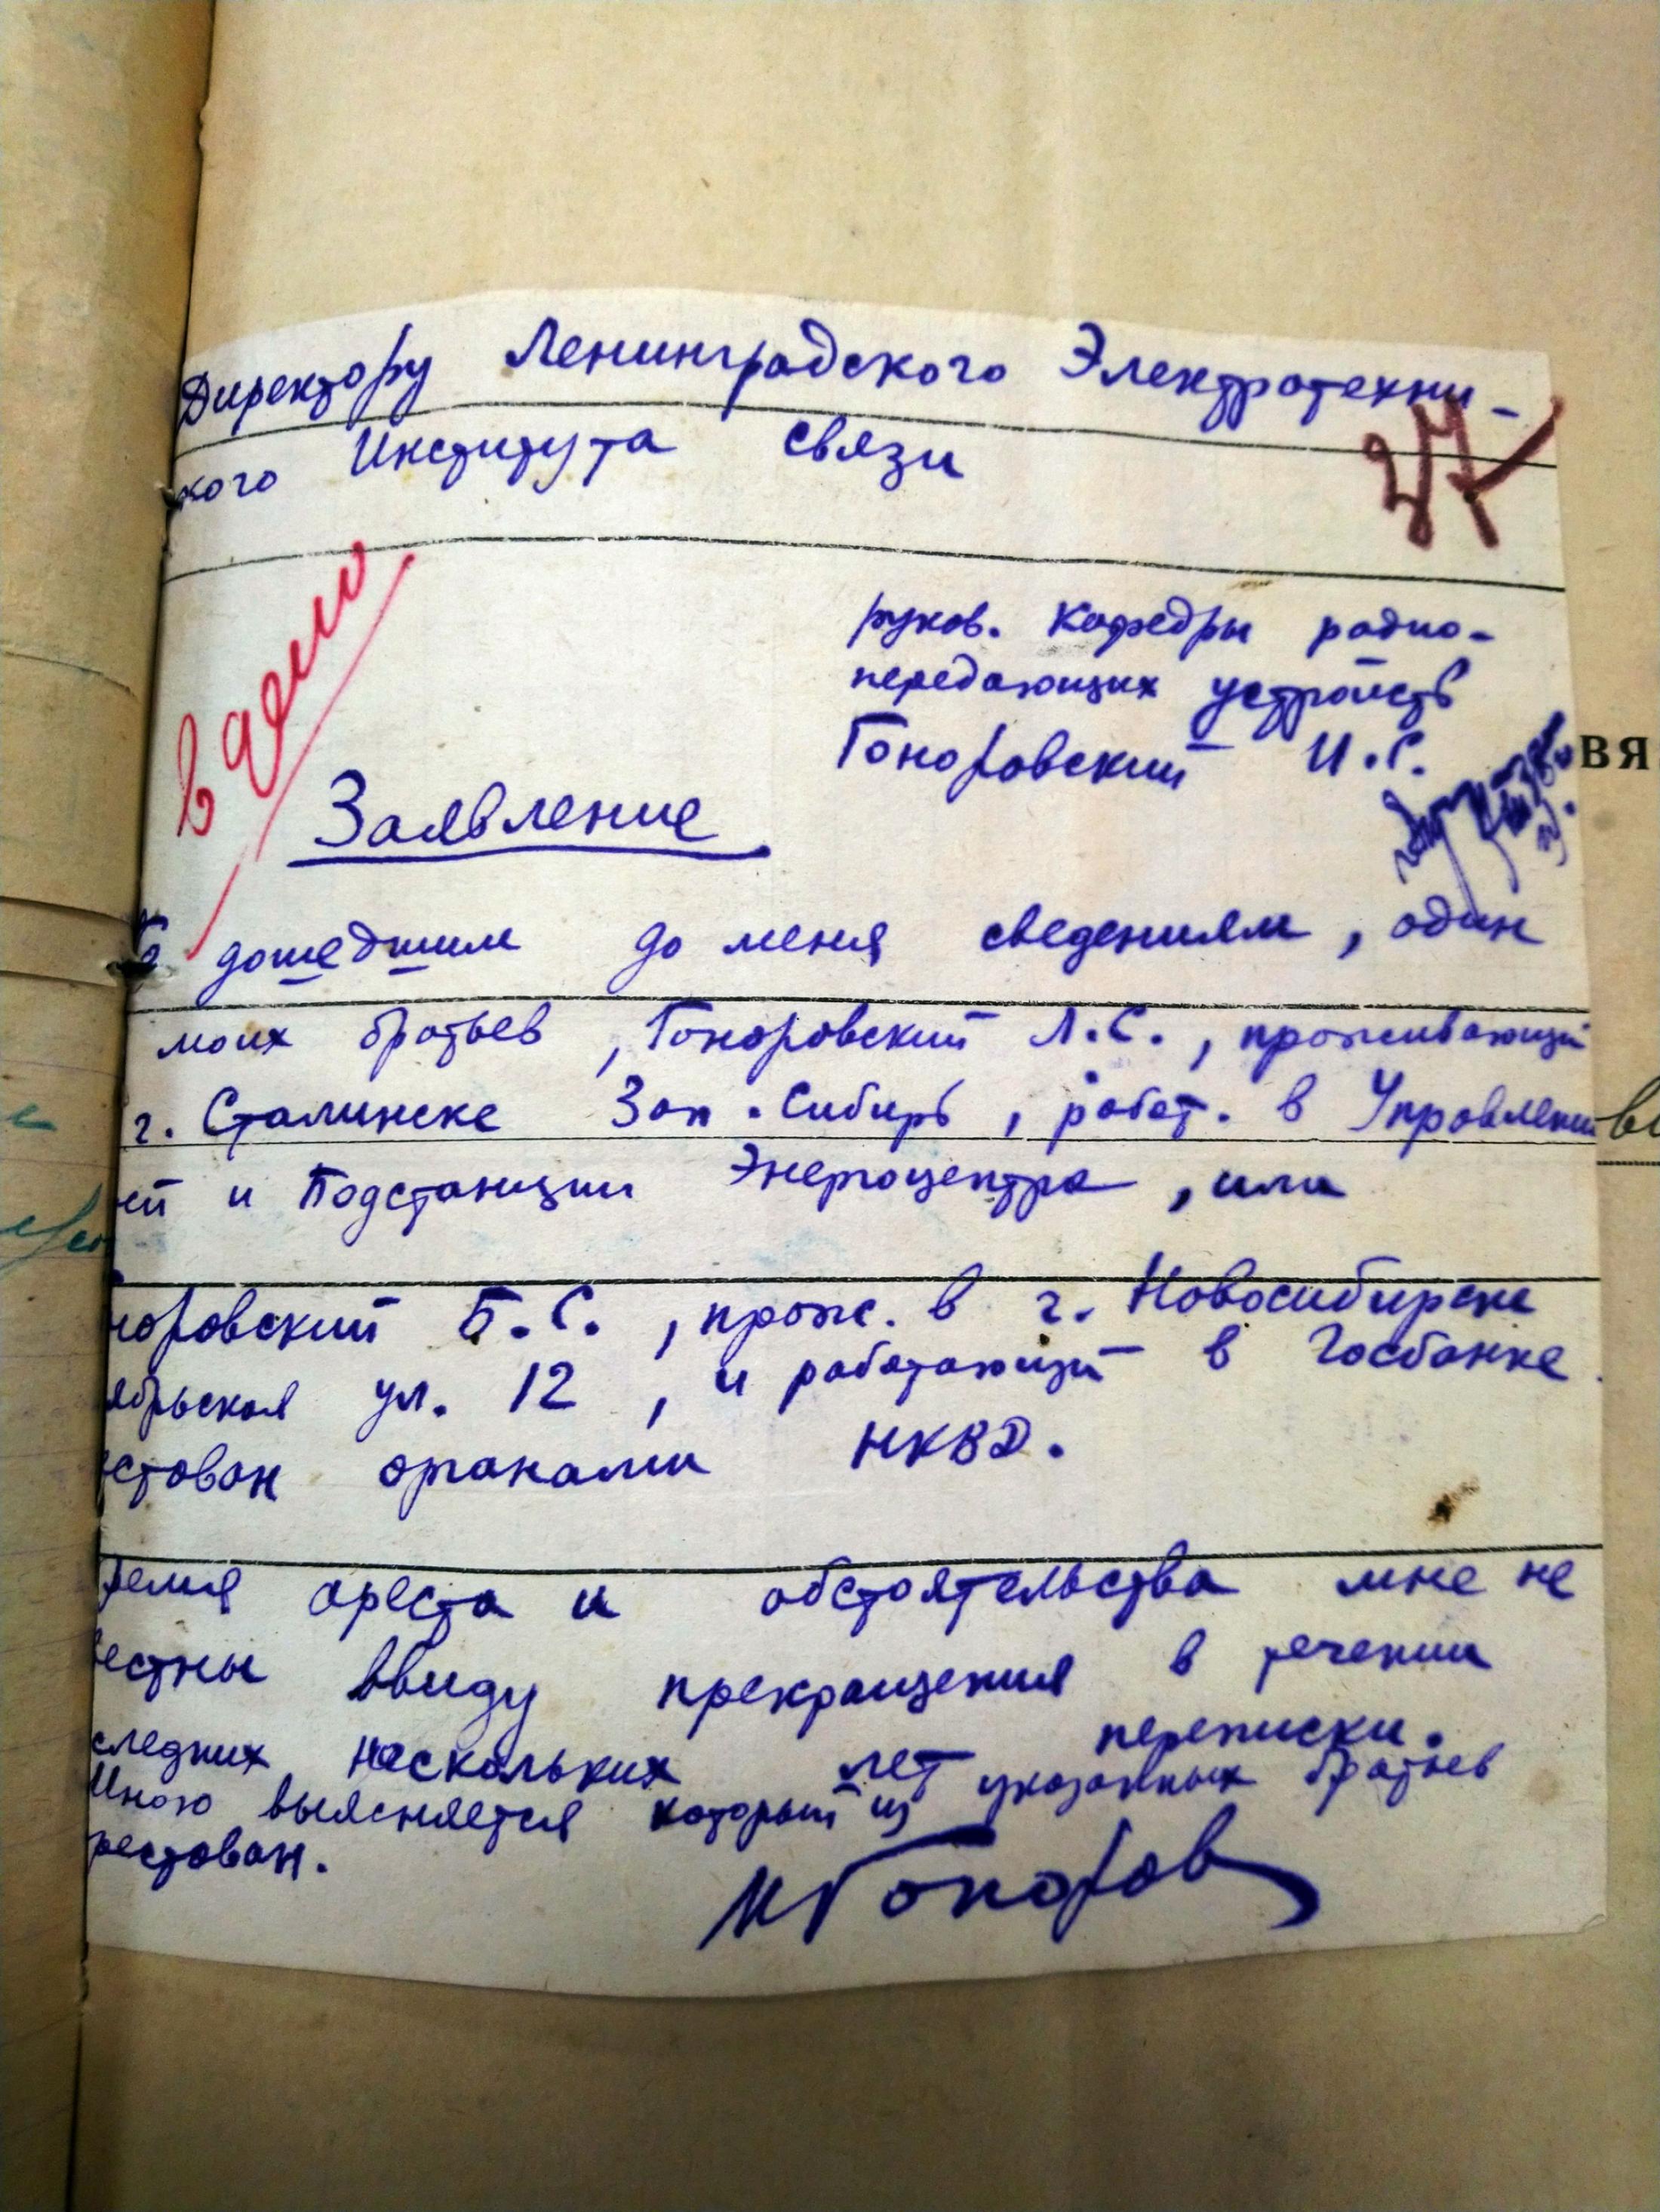 Директору Ленинградского Электротехни-
кого Института связи
27
в дело
руков. Кафедры радио-
передающих устройств
Гоноровский И.С.
вя
Заявление
По дошедшим до меня сведениям, один
моих братьев, Гоноровский Л.С., проживающий
г. Сталинске Зап. Сибирь, работ. в Управлении
ей и Подстанции Энергоцентра, или
норовский Б.С., прож. в г. Новосибирске
ябрьская ул. 12, и работающий в Госбанке
стован органами НКВД.
ремя ареста и обстоятельства мне не
вестны ввиду прекращения в течении
следних нескольких лет переписки.
Мною выясняется который из указанных братьев
рестован.
ИГоноров